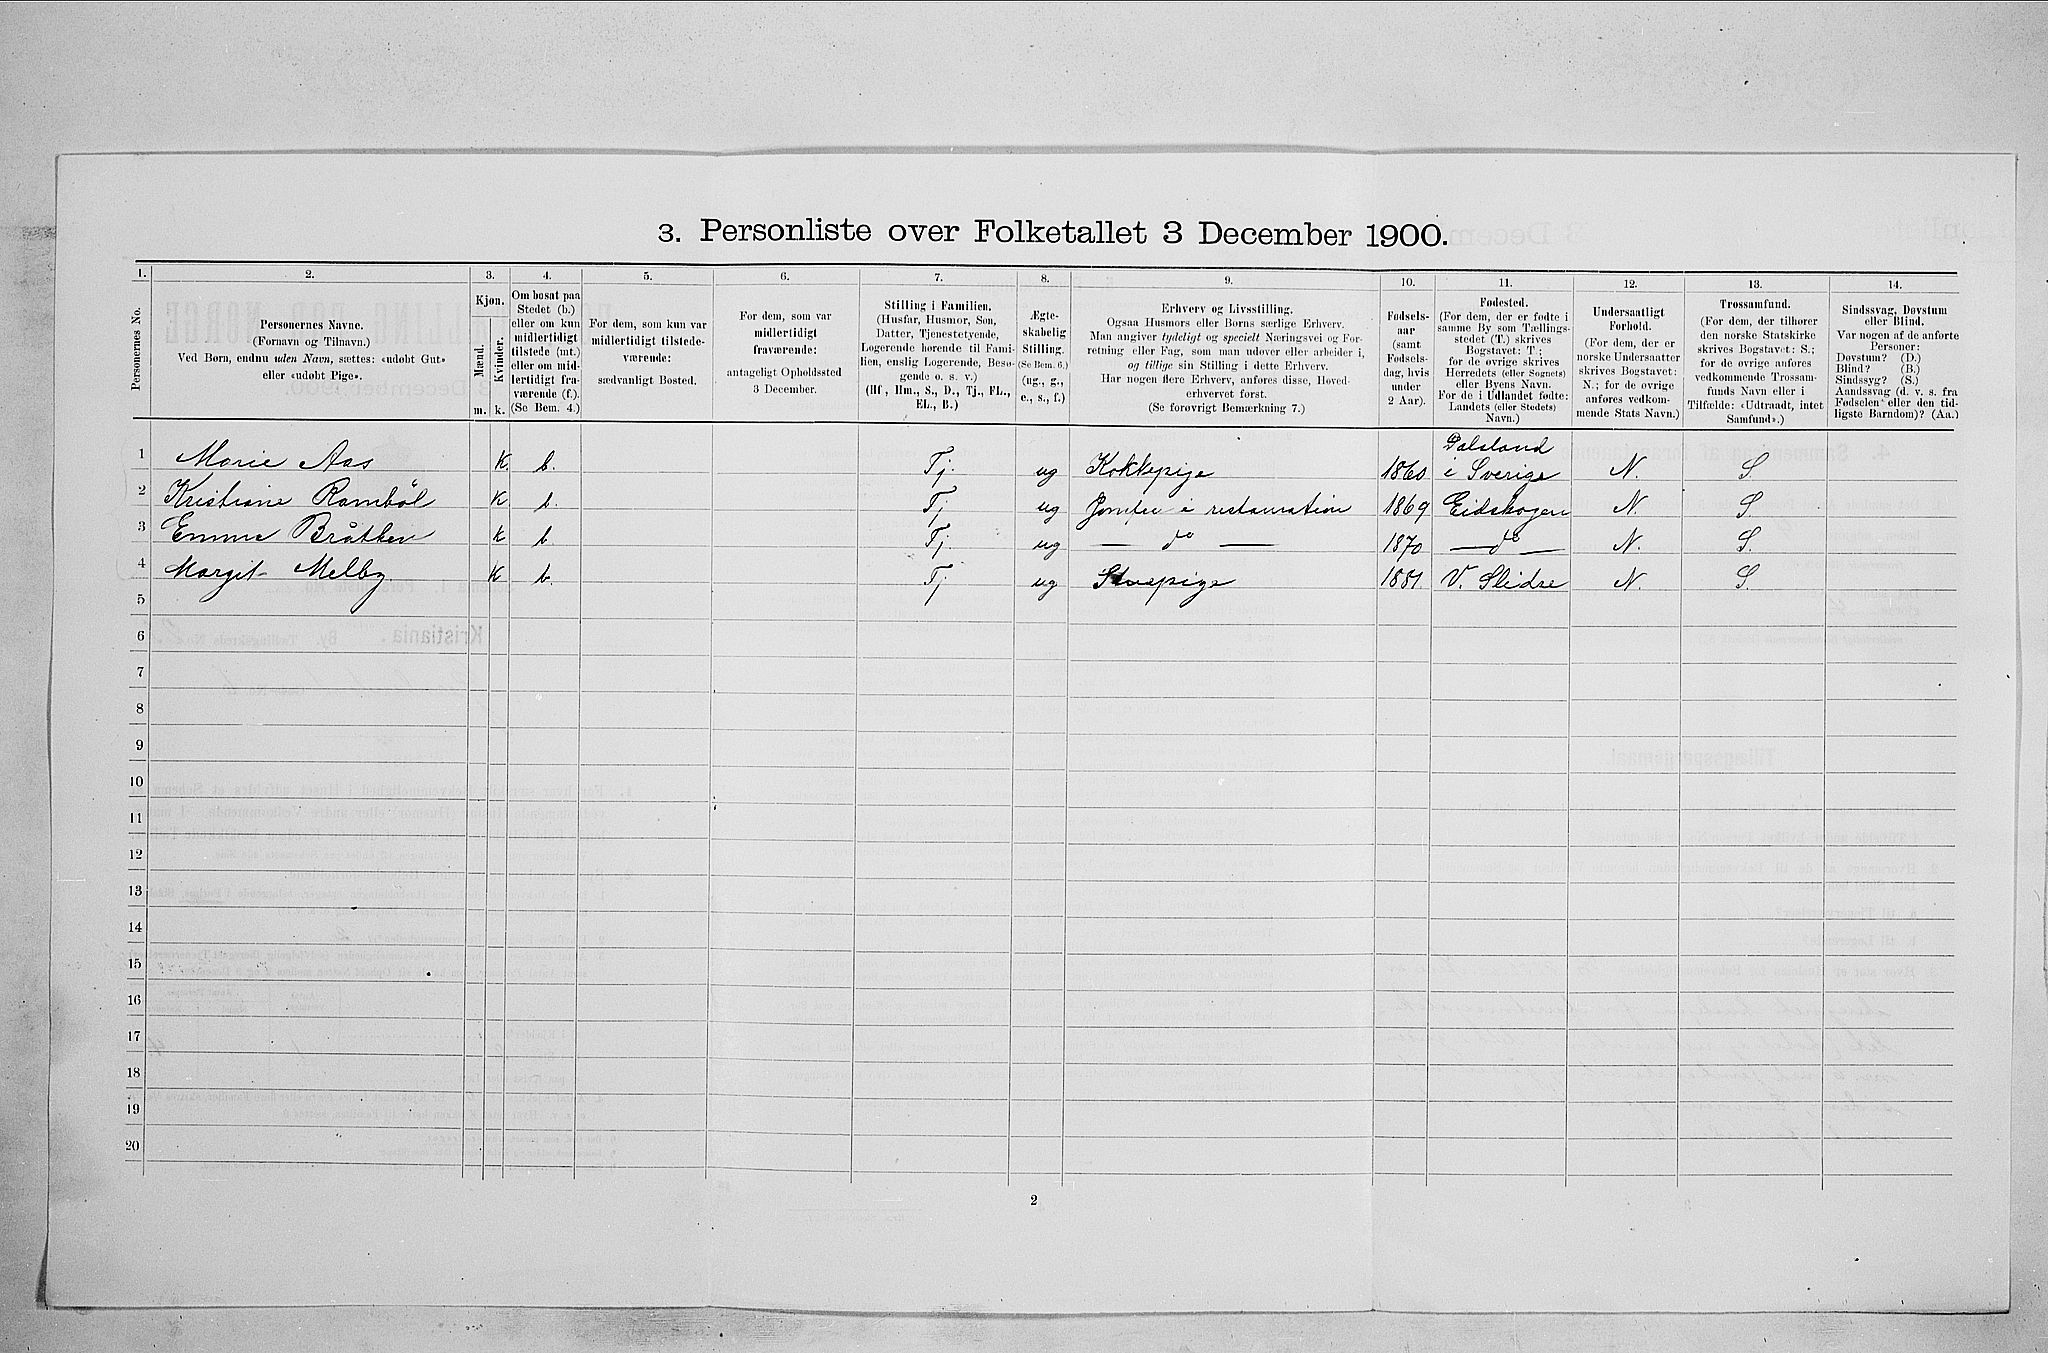 3. Personliste over Folketallet 3 December 1900.
1. 2. 3. 4. 5. 6. 7. 8. 9. 10. 11. 12. 13. 14.
Personernes No.
Personernes Navne.
(Fornavn og Tilnavn.)
Ved Børn, endnu uden Navn, sættes: «udøbt Gut»
eller «udøbt Pige».
Kjøn.
Mænd.
Kvinder.
m. k.
Om bosat paa
Stedet (b.)
eller om kun
midlertidigt
tilstede (mt.)
eller om mid-
lertidigt fra-
værende (f.).
(Se Bem. 4.)
For dem, som kun var
midlertidigt tilstede-
værende:
sædvanligt Bosted.
For dem, som var
midlertidigt
fraværende:
antageligt Opholdssted
3 December.
Stilling i Familien.
(Husfar, Husmor, Søn,
Datter, Tjenestetyende,
Logerende hørende til Fami-
lien, enslig Logerende, Besø-
gende o. s. v.)
(Hf, Hm., S., D., Tj., FL.,
EL., B.)
Ægte-
skabelig
Stilling.
(Se Bem. 6.)
(ug., g.,
e., s., f.)
Erhverv og Livsstilling.
Ogsaa Husmors eller Børns særlige Erhverv.
Man angiver tydeligt og specielt Næringsvei og For-
retning eller Fag, som man udøver eller arbeider i,
og tillige sin Stilling i dette Erhverv.
Har nogen flere Erhverv, anføres disse, Hoved-
erhvervet først.
(Se forøvrigt Bemærkning 7.)
Fødsels-
aar
(samt
Fødsels-
dag, hvis
under
2 Aar).
Fødested.
(For dem, der er fødte i
samme By som Tællings-
stedet (T.) skrives
Bogstavet: T;
for de øvrige skrives
Herredets (eller Sognets)
eller Byens Navn.
For de i Udlandet fødte:
Landets (eller Stedets)
Navn.)
Undersaatligt
Forhold.
(For dem, der er
norske Undersaatter
skrives Bogstavet:
N.; for de øvrige
anføres vedkom-
mende Stats Navn.)
Trossamfund.
(For dem, der tilhører
den norske Statskirke
skrives Bogstavet: S.;
for de øvrige anføres
vedkommende Trossam-
funds Navn eller i
Tilfælde: «Udtraadt, intet
Samfund».)
Sindssvag, Døvstum
eller Blind.
Var nogen af de anførte
Personer:
Døvstum? (D.)
Blind? (B.)
Sindssyg? (S.)
Aandssvag (d. v. s. fra
Fødselen eller den tid-
ligste Barndom)? (Aa.)
1 Marie Aas K b. Tj. ug Kokkepige 1860 Dalsland i Sverige N. S.
2 Kristiane Rambøl K b. Tj ug Jomfru i restauration 1869 Eidskogen N. S
3 Emma Bråthen K b Tj. ug — do — 1870 — do — N. S.
4 Margit Melby K b. Tj ug Stuepige 1881. V. Slidre N. S.
5
6
7
8
9
10
11
12
13
14
15
16
17
18
19
20
2